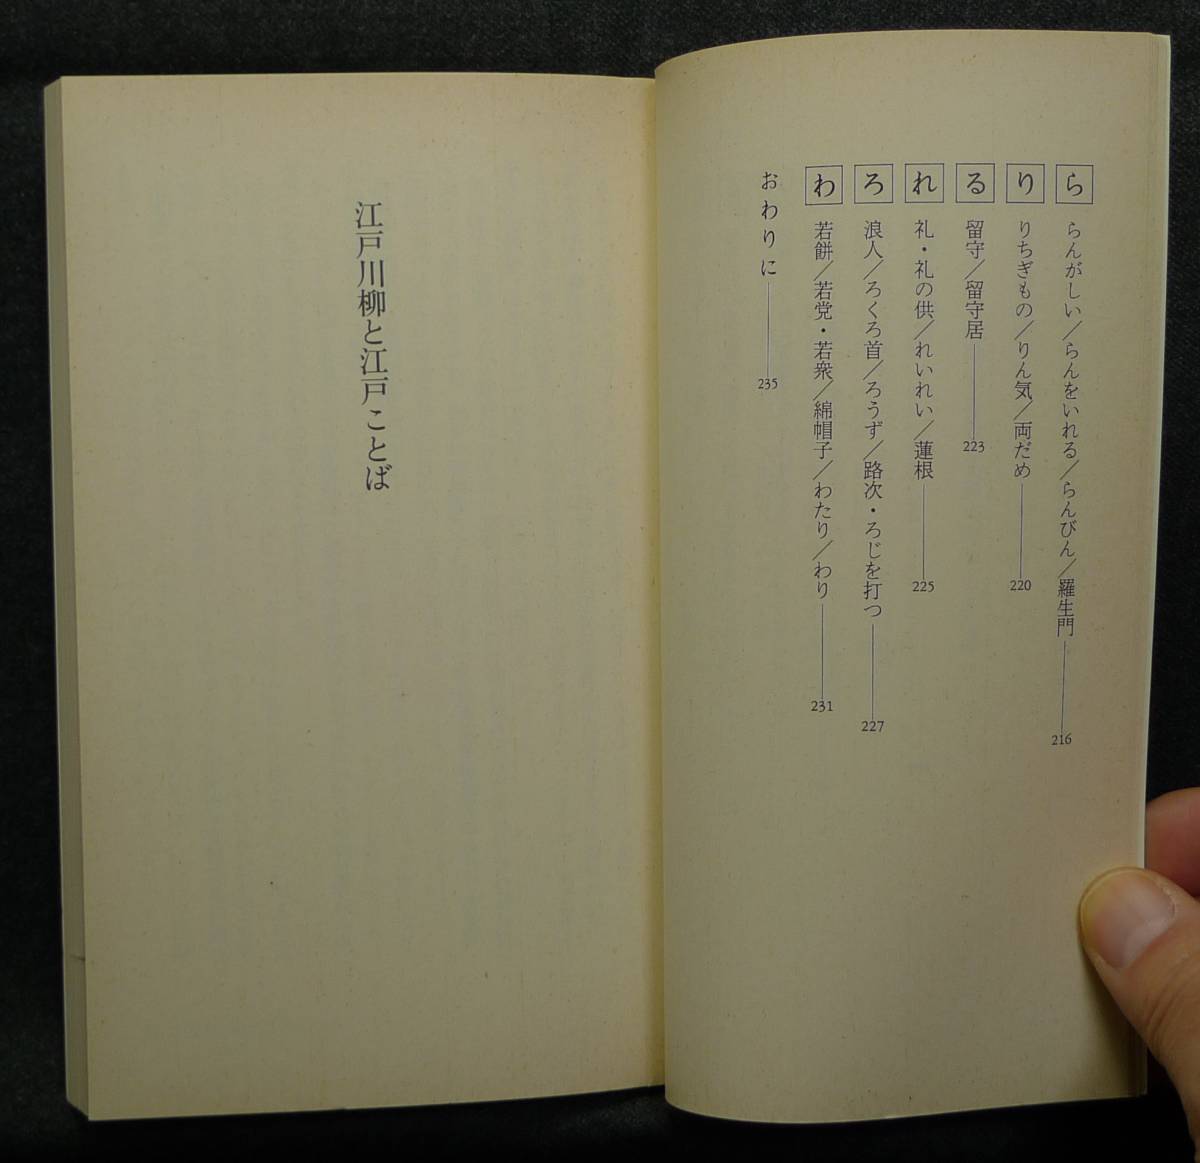 ら らんがしい／らんをいれる／らんびん／羅生門 216
り りちぎもの／りん気／両だめ 220
る 留守／留守居 223
れ 礼・礼の供／れいれい／蓮根 225
ろ 浪人／ろくろ首／ろうず／路次・ろじを打つ 227
わ 若餅／若党・若衆／綿帽子／わたり／わり 231
おわりに 235
江戸川柳と江戸ことば